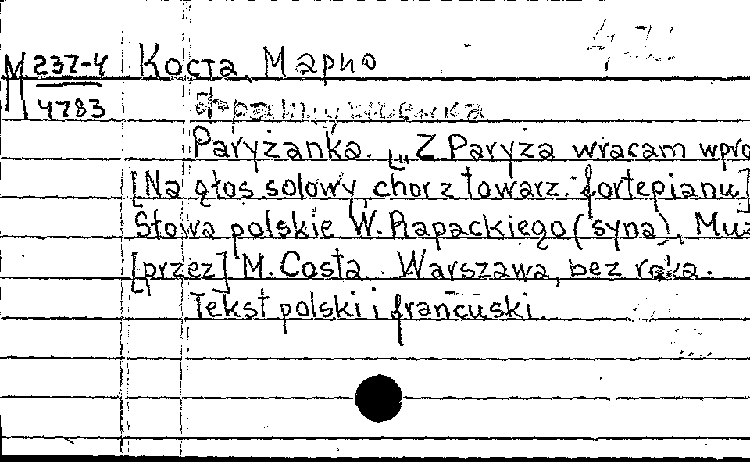 М 237-4
4783
Коста, Марио
Paryżanka. „Z Paryża wracam wpro
[Na głos solowy, chór z towarz. fortepianu]
Słowa polskie W. Rapackiego (syna), Muz
[przez] M. Costa. Warszawa, bez roka.
Tekst polski i francuski.